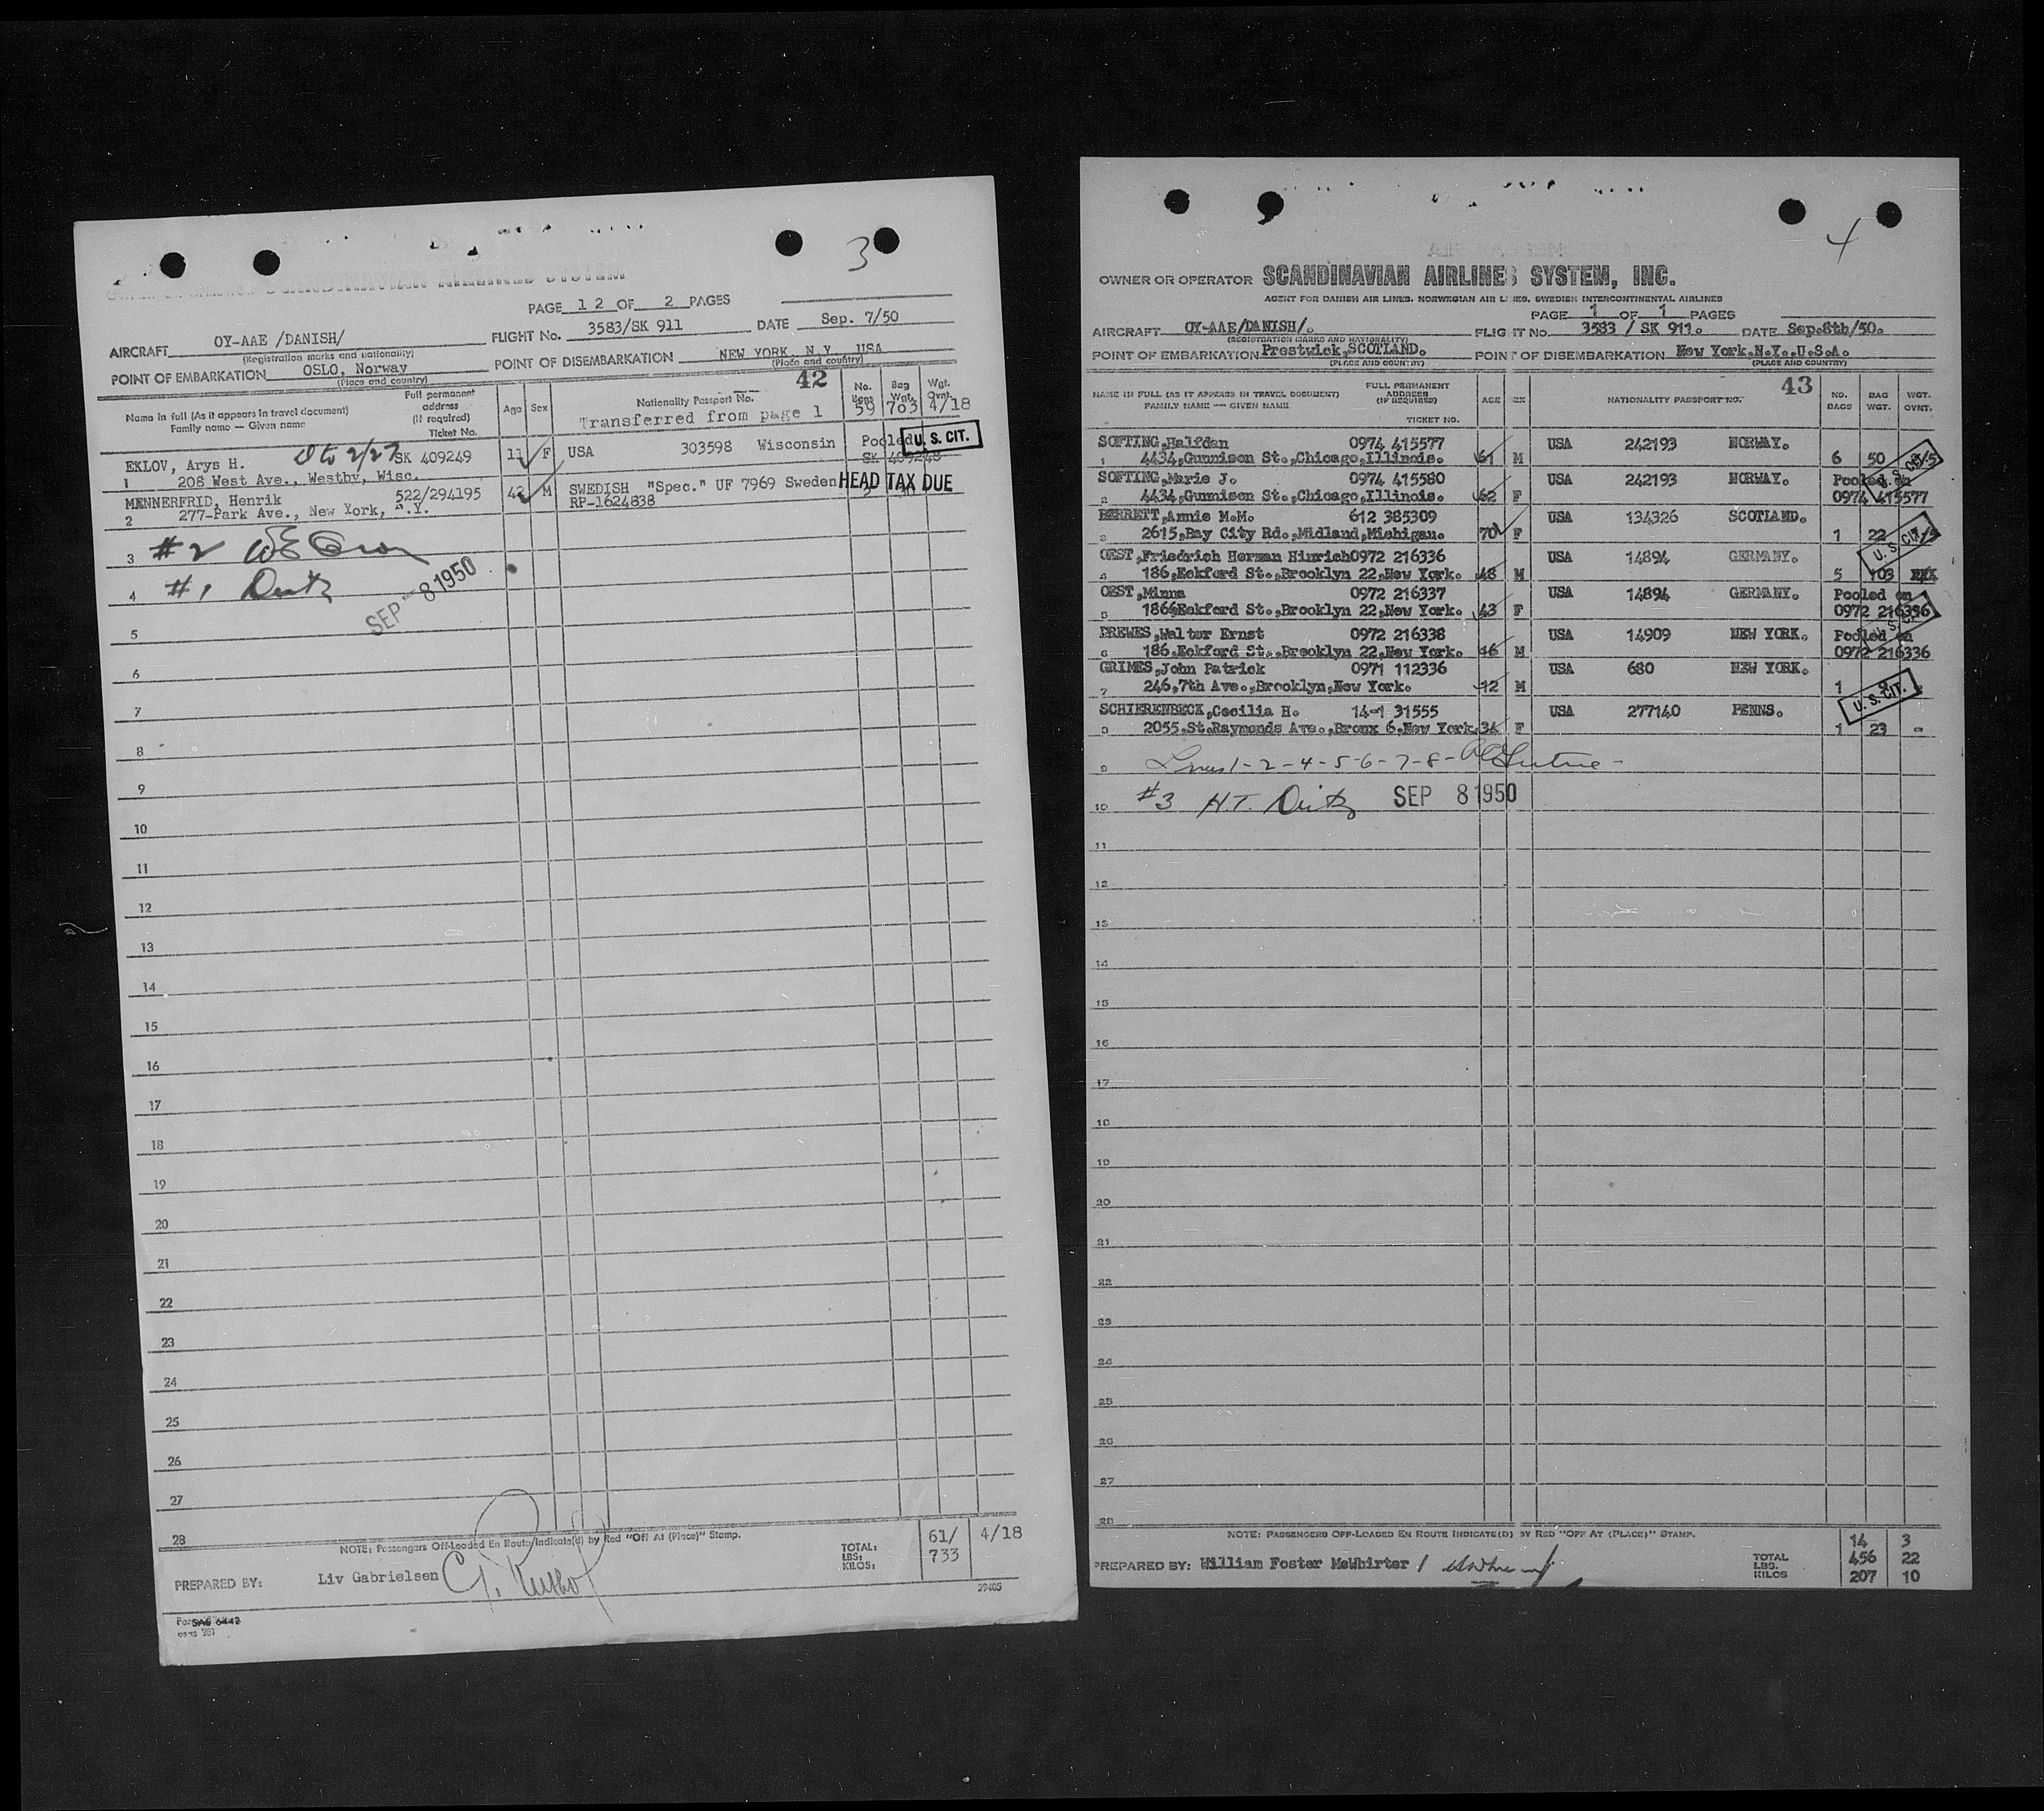 3
SCANDINAVIAN AIRLINES SYSTEM
PAGE 1 2 OF 2 PAGES
AIRCRAFT OY-AAE /DANISH/ FLIGHT No. 3583/SK 911 DATE Sep. 7/50
(Registration marks and nationality)
POINT OF EMBARKATION OSLO, Norway POINT OF DISEMBARKATION NEW YORK, N.Y. USA
(Place and country) (Place and country)
42
Name in full (As it appears in travel document) Full permanent address (if required) Age Sex Nationality Passport No. No. Bags Bag Wgt. Wgt. Ovnt.
Family name — Given name Ticket No. Transferred from page 1 59 703 4/18
EKLOV, Arys H. SK 409249 11 F USA 303598 Wisconsin Pooled U. S. CIT.
1 208 West Ave., Westby, Wisc. SK 409248
MENNERFRID, Henrik 522/294195 42 M SWEDISH "Spec." UF 7969 Sweden HEAD TAX DUE
2 277-Park Ave., New York, N.Y. RP-1624838
3 #2
4 #1 Deitz SEP 8 1950
5
6
7
8
9
10
11
12
13
14
15
16
17
18
19
20
21
22
23
24
25
26
27
28
NOTE: Passengers Off-Loaded En Route Indicate(d) by Red "Off At (Place)" Stamp.
TOTAL: 61/ 4/18
LBS:
KILOS: 733
PREPARED BY: Liv Gabrielsen
29405
Form SAS 6442
4
OWNER OR OPERATOR SCANDINAVIAN AIRLINES SYSTEM, INC.
AGENT FOR DANISH AIR LINES, NORWEGIAN AIR LINES, SWEDISH INTERCONTINENTAL AIRLINES
PAGE 1 OF 1 PAGES
AIRCRAFT OY-AAE/DANISH/. FLIGHT No. 3583 / SK 911. DATE Sep.8th/50.
(REGISTRATION MARKS AND NATIONALITY)
POINT OF EMBARKATION Prestwick,SCOTLAND. POINT OF DISEMBARKATION New York.N.Y.,U.S.A.
(PLACE AND COUNTRY) (PLACE AND COUNTRY)
43
NAME IN FULL (AS IT APPEARS IN TRAVEL DOCUMENT) FULL PERMANENT ADDRESS (IF REQUIRED) AGE SEX NATIONALITY PASSPORT NO. NO. BAGS BAG WGT. WGT. OVNT.
FAMILY NAME — GIVEN NAME TICKET NO.
SOFTING,Halfdan 0974 415577 USA 242193 NORWAY.
1 4434,Gunnison St.,Chicago,Illinois. 61 M 6 50 U. S. CIT.
SOFTING,Marie J. 0974 415580 USA 242193 NORWAY. Pooled on
2 4434,Gunnison St.,Chicago,Illinois. 62 F 0974 415577
BERRETT,Annie M.M. 612 385309 USA 134326 SCOTLAND.
3 2615,Bay City Rd.,Midland,Michigan. 70 F 1 22 U. S. CIT.
OEST,Friedrich Herman Hinrich 0972 216336 USA 14894 GERMANY.
4 186,Eckford St.,Brooklyn 22,New York. 48 M 5 103 XXX
OEST,Minna 0972 216337 USA 14894 GERMANY. Pooled on
5 1866Eckford St.,Brooklyn 22,New York. 43 F 0972 216336
DREWES,Walter Ernst 0972 216338 USA 14909 NEW YORK. Pooled on
6 186,Eckford St.,Brooklyn 22,New York. 16 M 0972 216336
GRIMES,John Patrick 0971 112336 USA 680 NEW YORK.
7 246,7th Ave.,Brooklyn,New York. 12 M 1 U. S. CIT.
SCHIERENBECK,Cecilia H. 14-1 31555 USA 277140 PENNS.
8 2055,St.Raymonds Ave.,Bronx 6,New York. 34 F 1 23 -
9 Lines 1-2-4-5-6-7-8-
10 #3 H.T. Deitz SEP 8 1950
11
12
13
14
15
16
17
18
19
20
21
22
23
24
25
26
27
28
NOTE: PASSENGERS OFF-LOADED EN ROUTE INDICATE(D) BY RED "OFF AT (PLACE)" STAMP.
14 3
PREPARED BY: William Foster McWhirter / TOTAL LBS. 456 22
KILOS 207 10